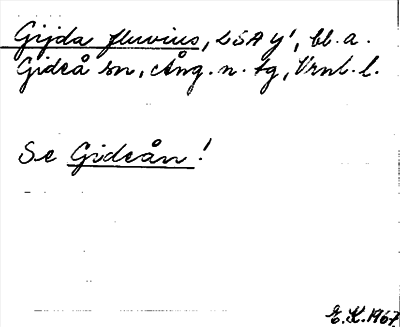 Gijda fluvius, LSA y', bl. a.
Gideå sn, Ång. n. tg, Vrnl. l.
Se Gideån!
E.K. 1967